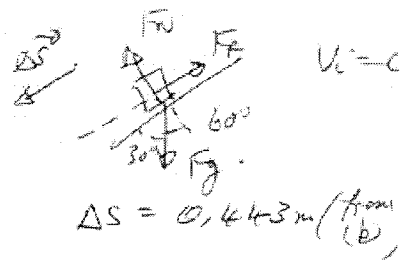 ΔS→ F_N F_f
U_i =
60°
30°
F_g
ΔS = 0,443 m (from
(b),